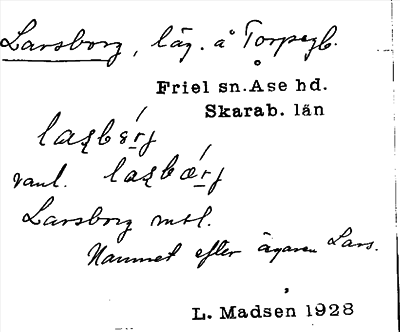 Larsborg, läg. å Torpagb.
Friel sn. Åse hd.
Skarab. län
laʂbɞrj
vanl. laʂbærj
Larsborg mtl.
Namnet efter ägaren Lars.
L. Madsen 1928